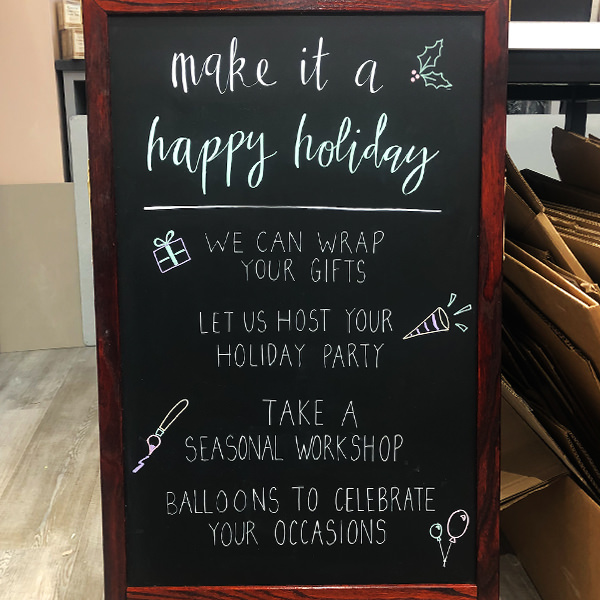 make it a
happy holiday
WE CAN WRAP
YOUR GIFTS
LET US HOST YOUR
HOLIDAY PARTY
TAKE A
SEASONAL WORKSHOP
BALLOONS TO CELEBRATE
YOUR OCCASIONS